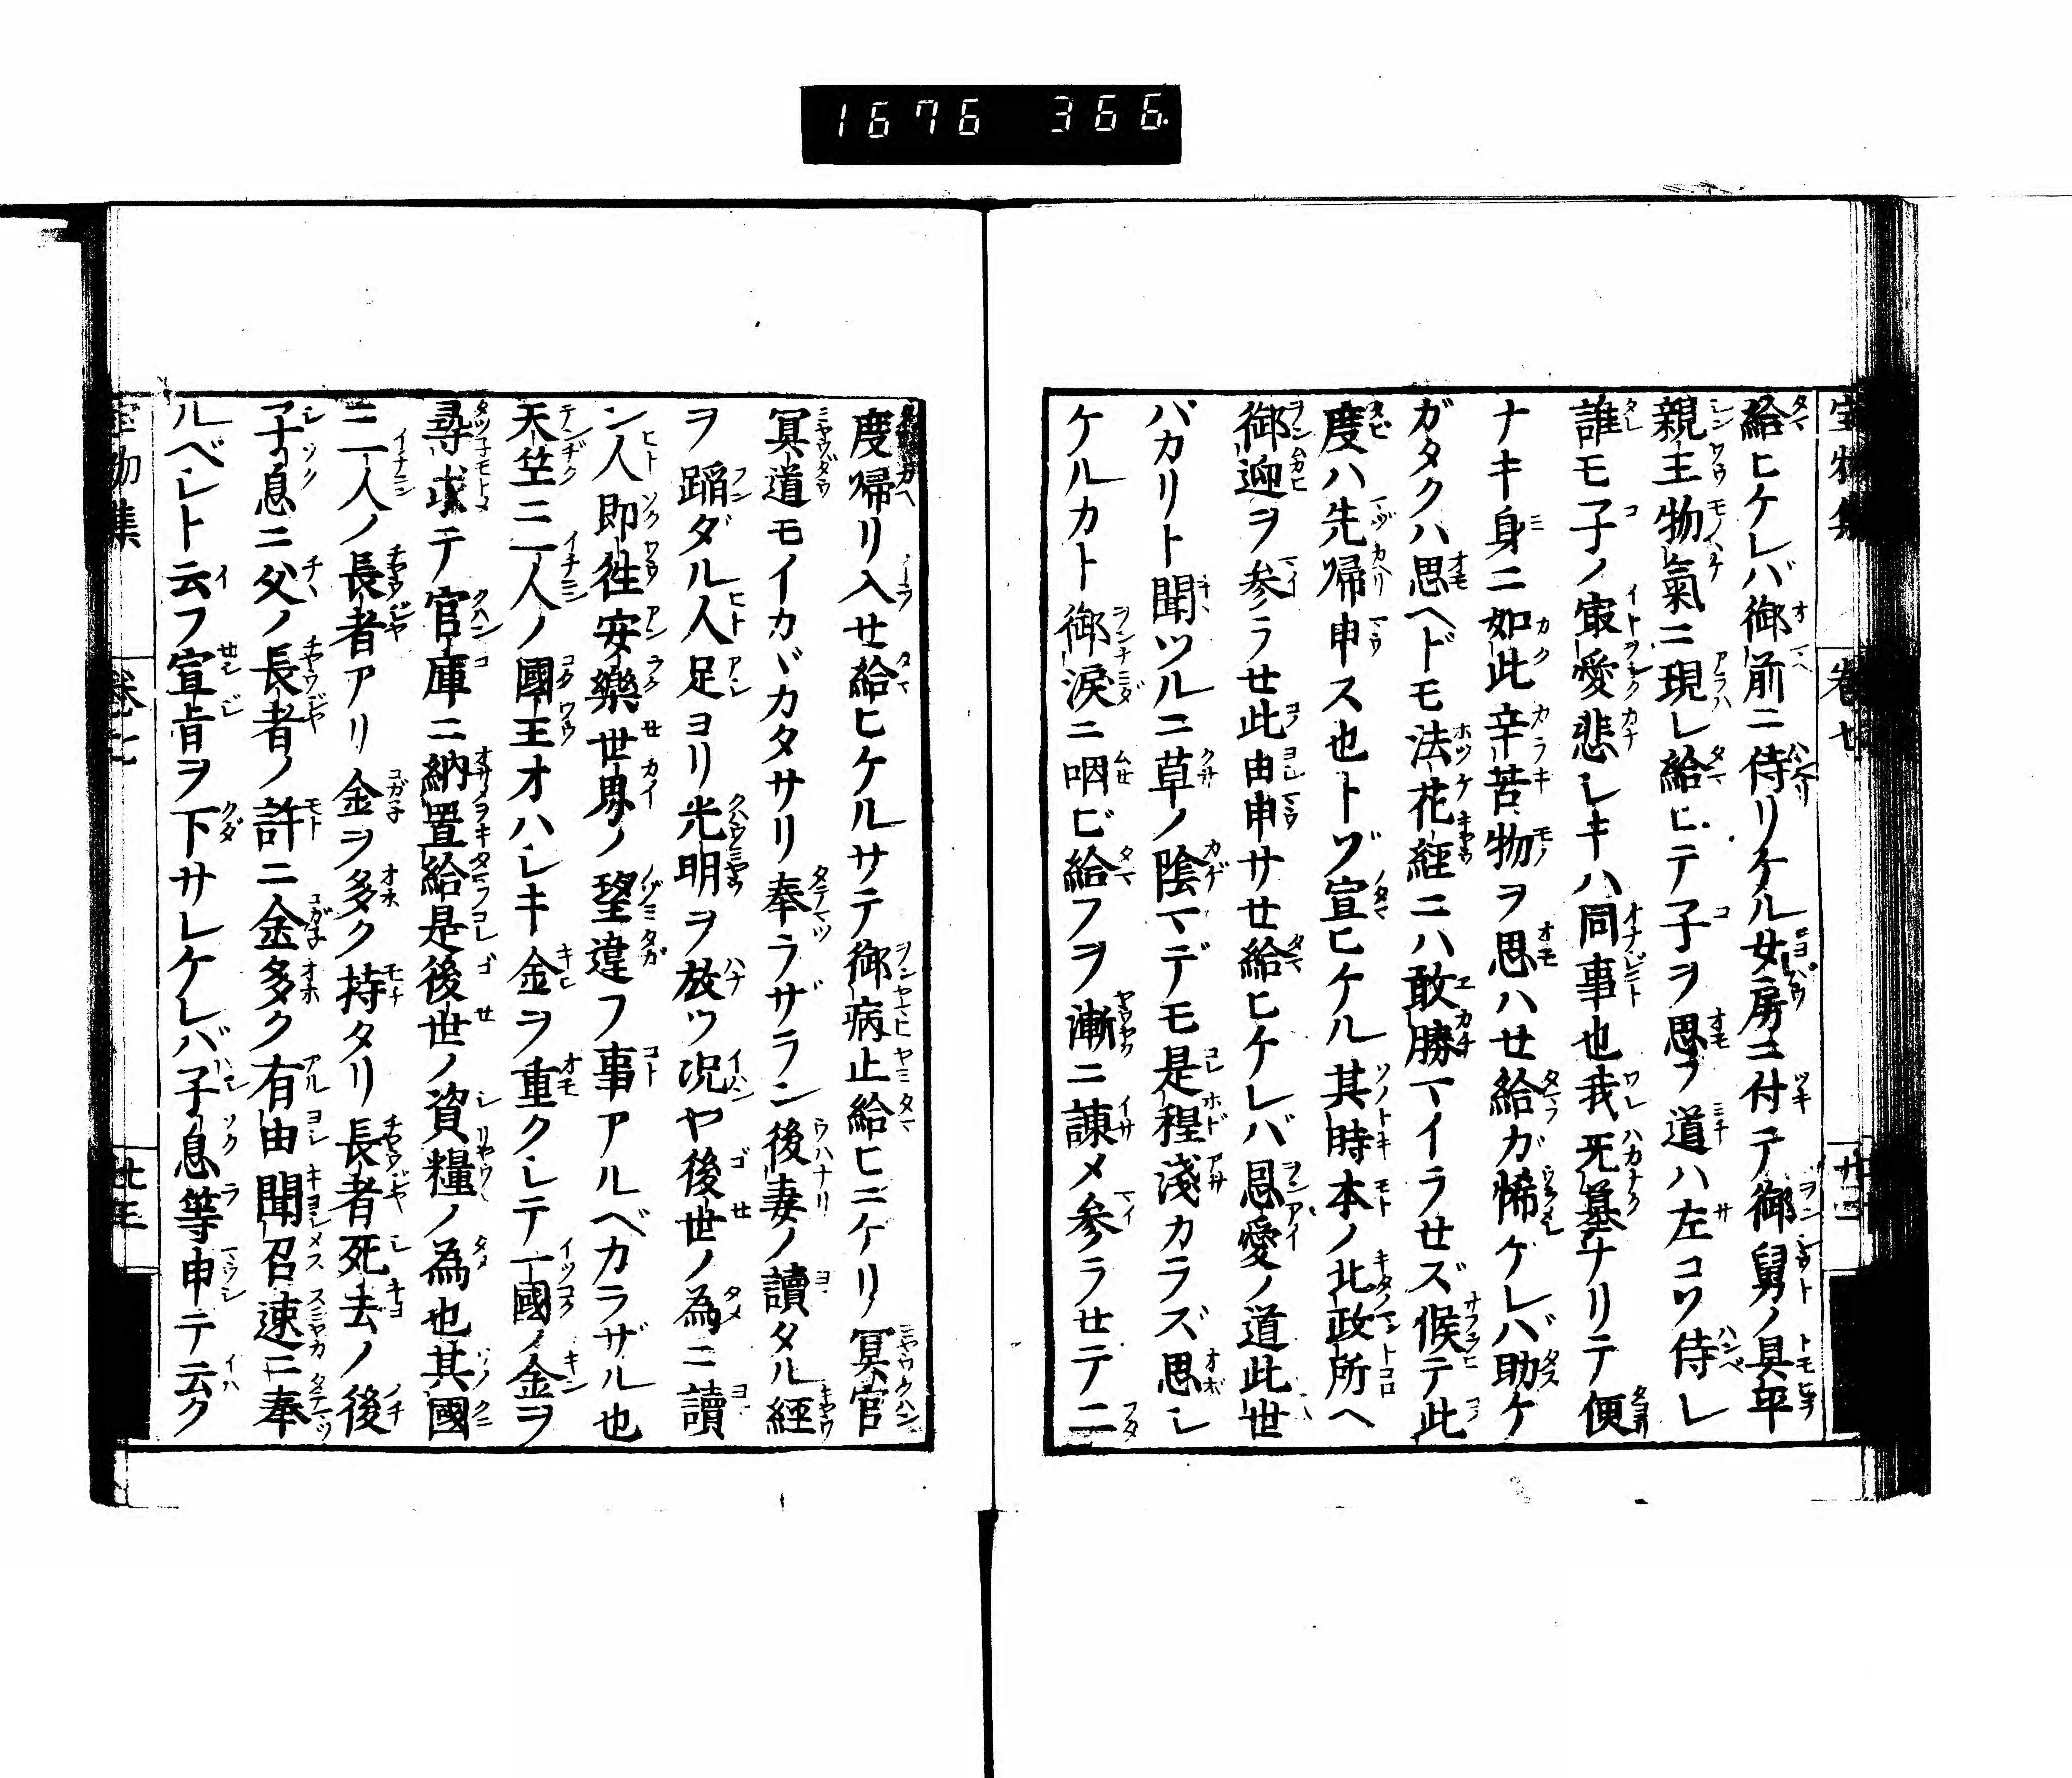 1676 366.
給ヒケレバ御前ニ侍リケル女房ニ付テ御舅ノ具平
親王物氣ニ現レ給ヒテ子ヲ思フ道ハ左コソ侍レ
誰モ子ノ最愛悲レキハ同事也我死墓ナリテ便
ナキ身ニ如此辛苦物ヲ思ハせ給ガ悕ケレバ助ケ
ガタクハ思ヘドモ法花経ニハ敢勝マイラせズ候テ此
度ハ先帰申ス也トゾ宣ヒケル其時本ノ北政所ヘ
御迎ヲ参ラせ此由申サせ給ヒケレバ恩愛ノ道此世
バカリト聞ツルニ草ノ陰マデモ是程淺カラズ思レ
ケルカト御涙ニ咽ビ給フヲ漸ニ諫メ参ラせテ二
度帰リ入せ給ヒケルサテ御病止給ヒニケリ冥官
冥道モイカヾカタサリ奉ラザラン後妻ノ讀タル経
ヲ蹈ダル人足ヨリ光明ヲ放ツ况ヤ後世ノ為ニ讀
ン人即徃安樂世界ノ望違フ事アルベカラザル也
天竺ニ一人ノ國王オハレキ金ヲ重クレテ一國ノ金ヲ
尋求テ官庫ニ納置給是後世ノ資糧ノ為也其國
ニ一人ノ長者アリ金ヲ多ク持タリ長者死去ノ後
子息ニ父ノ長者ノ許ニ金多ク有由聞召速ニ奉
ルベレト云フ宣旨ヲ下サレケレバ子息等申テ云ク
宝物集 巻七